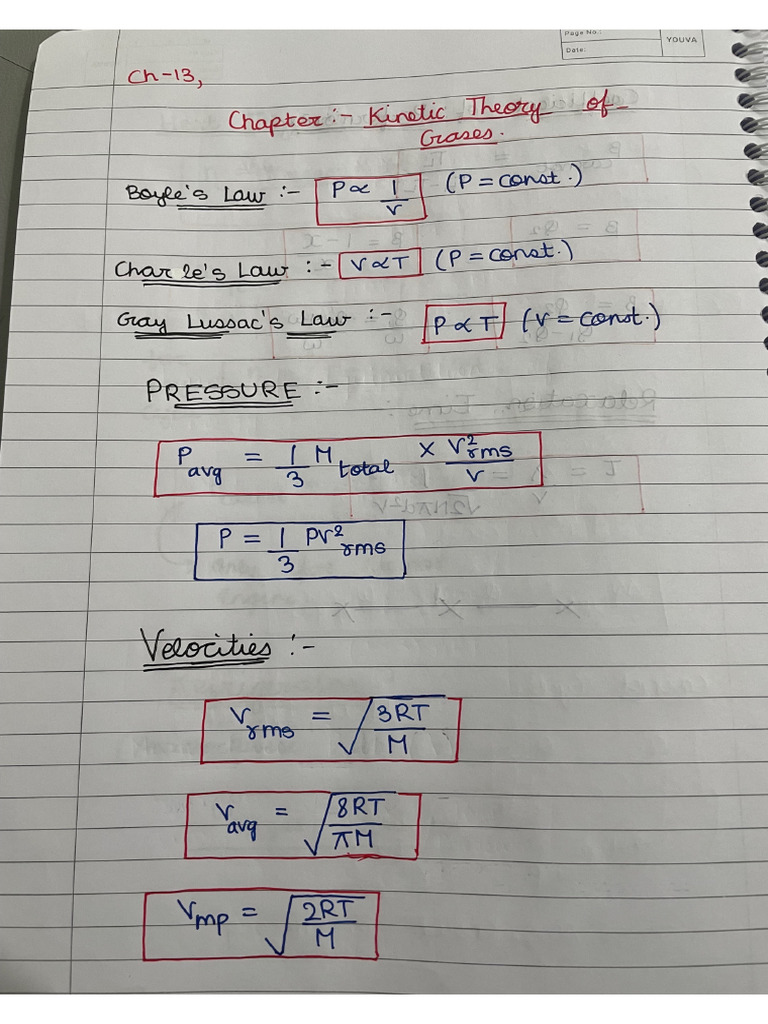 Page No.:
YOUVA
Date:
Ch-13,
Chapter :- Kinetic Theory of
Gases.
Boyle's Law :- P ∝ 1/V (P = const.)
Charle's Law :- V ∝ T (P = const.)
Gay Lussac's Law :- P ∝ T (V = const.)
PRESSURE :-
P avg = 1/3 M total × V²rms/V
P = 1/3 PV²rms
Velocities :-
Vrms = √(3RT/M)
Vavg = √(8RT/πM)
Vmp = √(2RT/M)